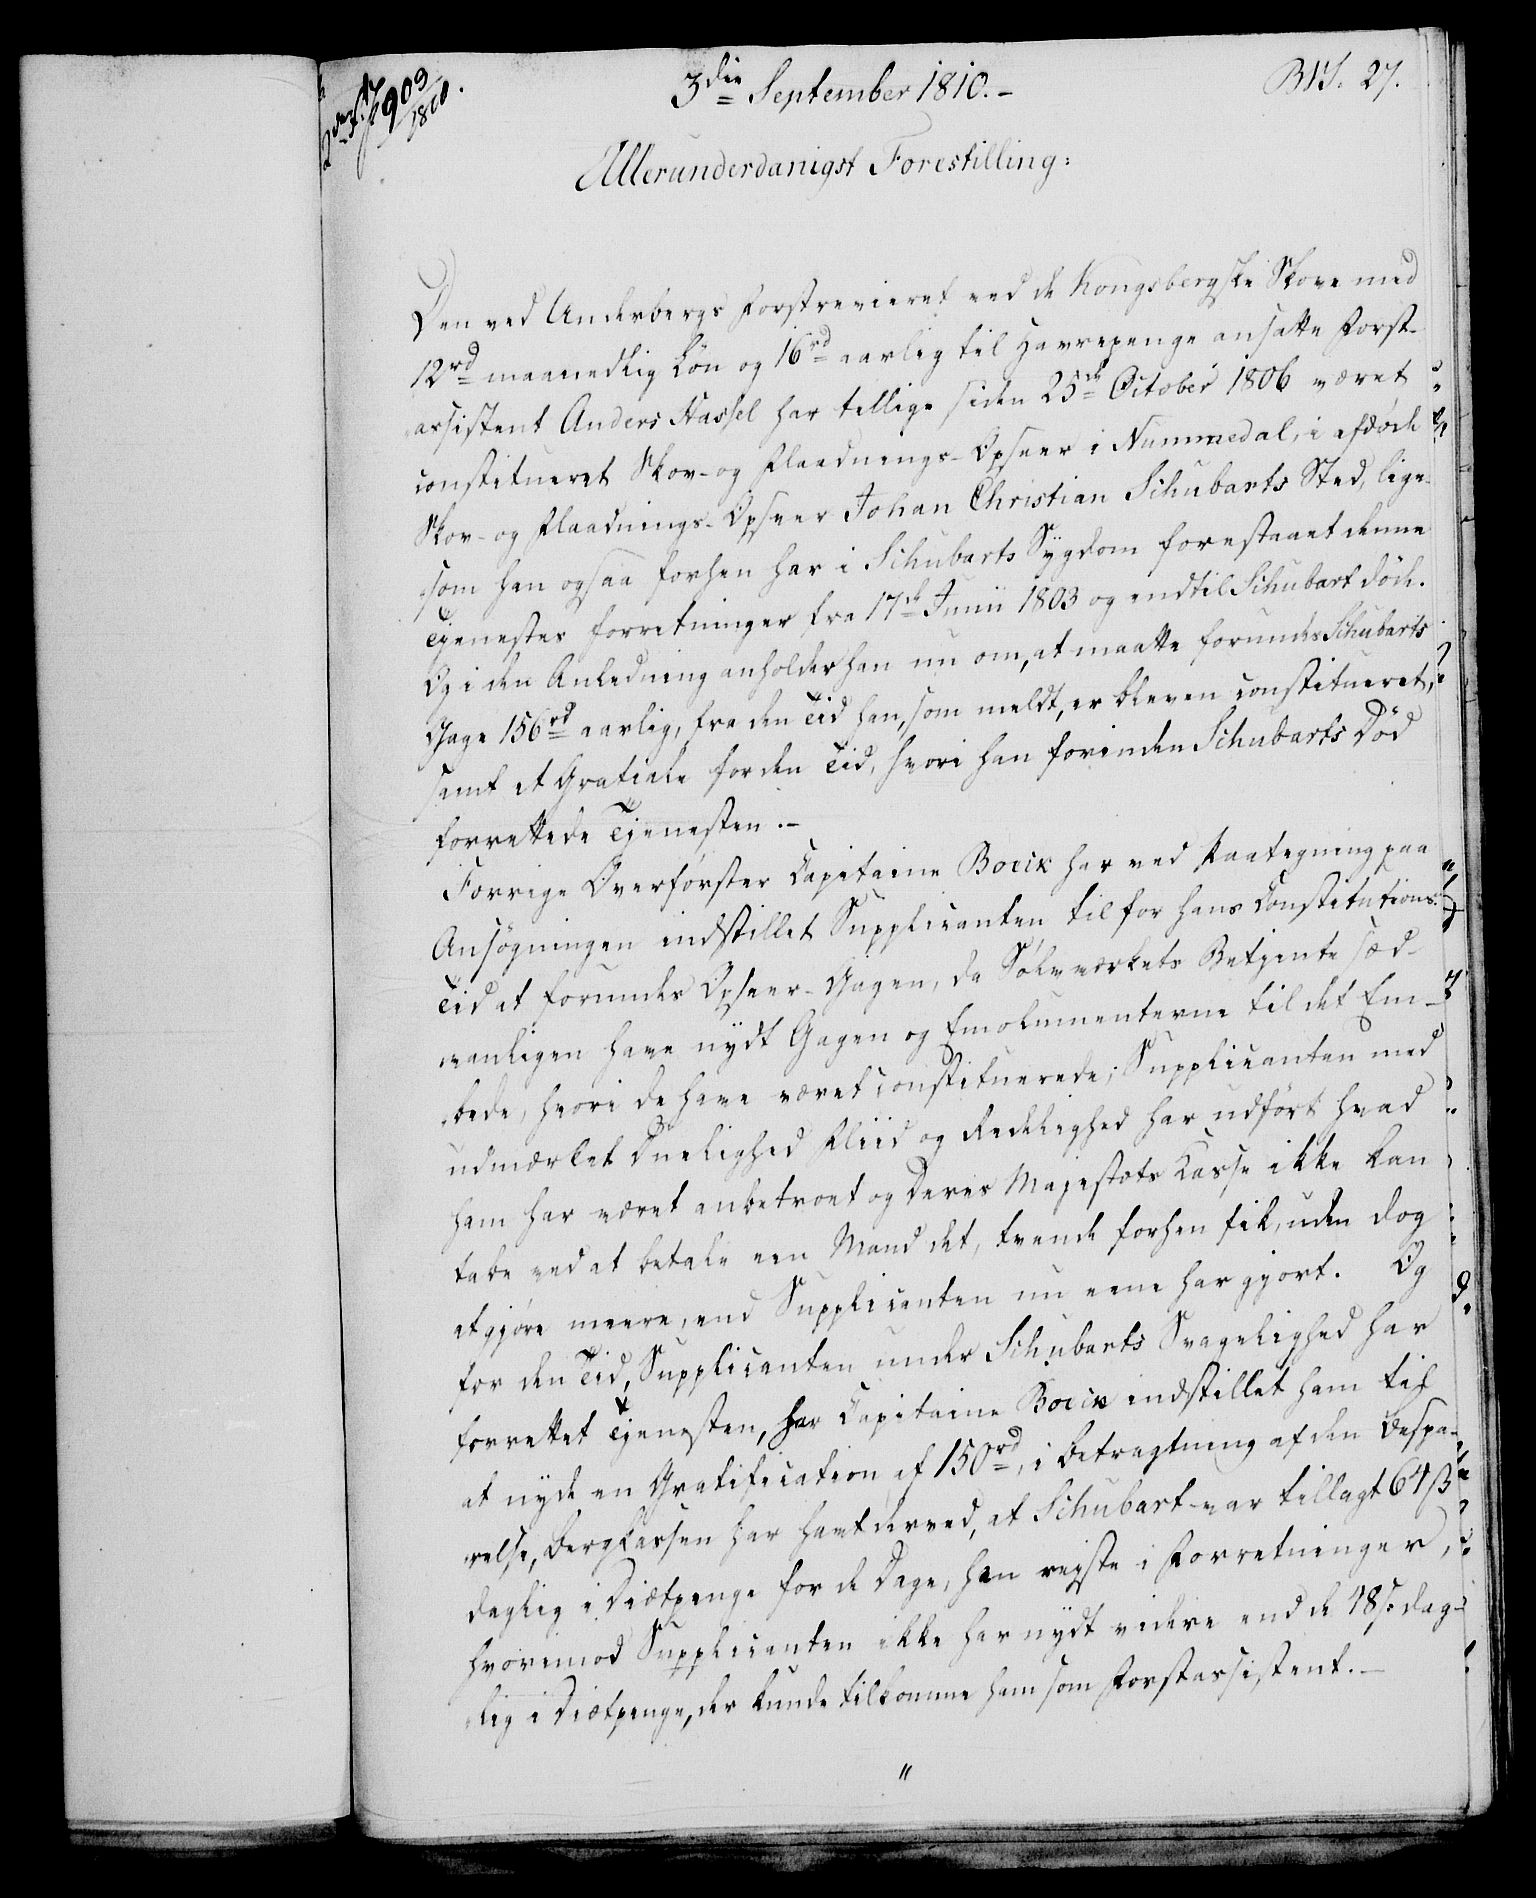 3die September 1810.-
BW. 27.
903/1810.
Allerunderdanigst Forestilling:
Den ved Underbergs Forstrevieret ved de Kongsbergske Skove med
12rd maanedlig Løn og 16rd aarlig til Havrepenge ansatte Forst-
assistent Anders Hassel har tillige siden 25de October 1806 været
constitueret Skov- og Flaadnings-Opseer i Nummedal, i afdøde
Skov- og Flaadnings-Opseer Johan Christian Schubarts Sted, lige-
som han ogsaa forhen har i Schubarts Sygdom forestaaet denne
Tjenestes Forretninger fra 17de Junii 1803 og indtil Schubart døde.
Og i den Anledning anholder han nu om, at maatte forundes Schubarts
Gage 156rd aarlig, fra den Tid han, som meldt, er bleven constitueret,
samt et Gratiale for den Tid, hvori han forinden Schubarts Død
forrettede Tjenesten.-
Forrige Overførster Capitaine Boeck har ved Paategning paa
Ansøgningen indstillet Supplicanten til for hans Constitutions-
Tid at forundes Opseer-Gagen, da Sølvværkets Betjente sæd-
vanligen have nydt Gagen og Emolumenterne til det Em-
bede, hvori de have været constituerede; Supplicanten med
udmærket Duelighed Fliid og Redelighed har udført hvad
ham har været anbetroet og Deres Majestæts Casse ikke kan
tabe ved at betale een Mand det, tvende forhen fik, uden dog
at gjøre meere, end Supplicanten nu eene har gjort. Og
for den Tid, Supplicanten under Schubarts Svagelighed har
forrettet Tjenesten, har Capitaine Boeck indstillet ham til
at nyde en Gratification af 150rd, i Betragtning af den Bespa-
relse, Bergcassen har havt derved, at Schubart var tillagt 64 ß
daglig i Diætpenge for de Dage, han reiste i Forretninger,
hvorimod Supplicanten ikke har nydt videre end de 48 ß dag-
lig i Diætpenge, der kunde tilkomme ham som Forstassistent.-
"